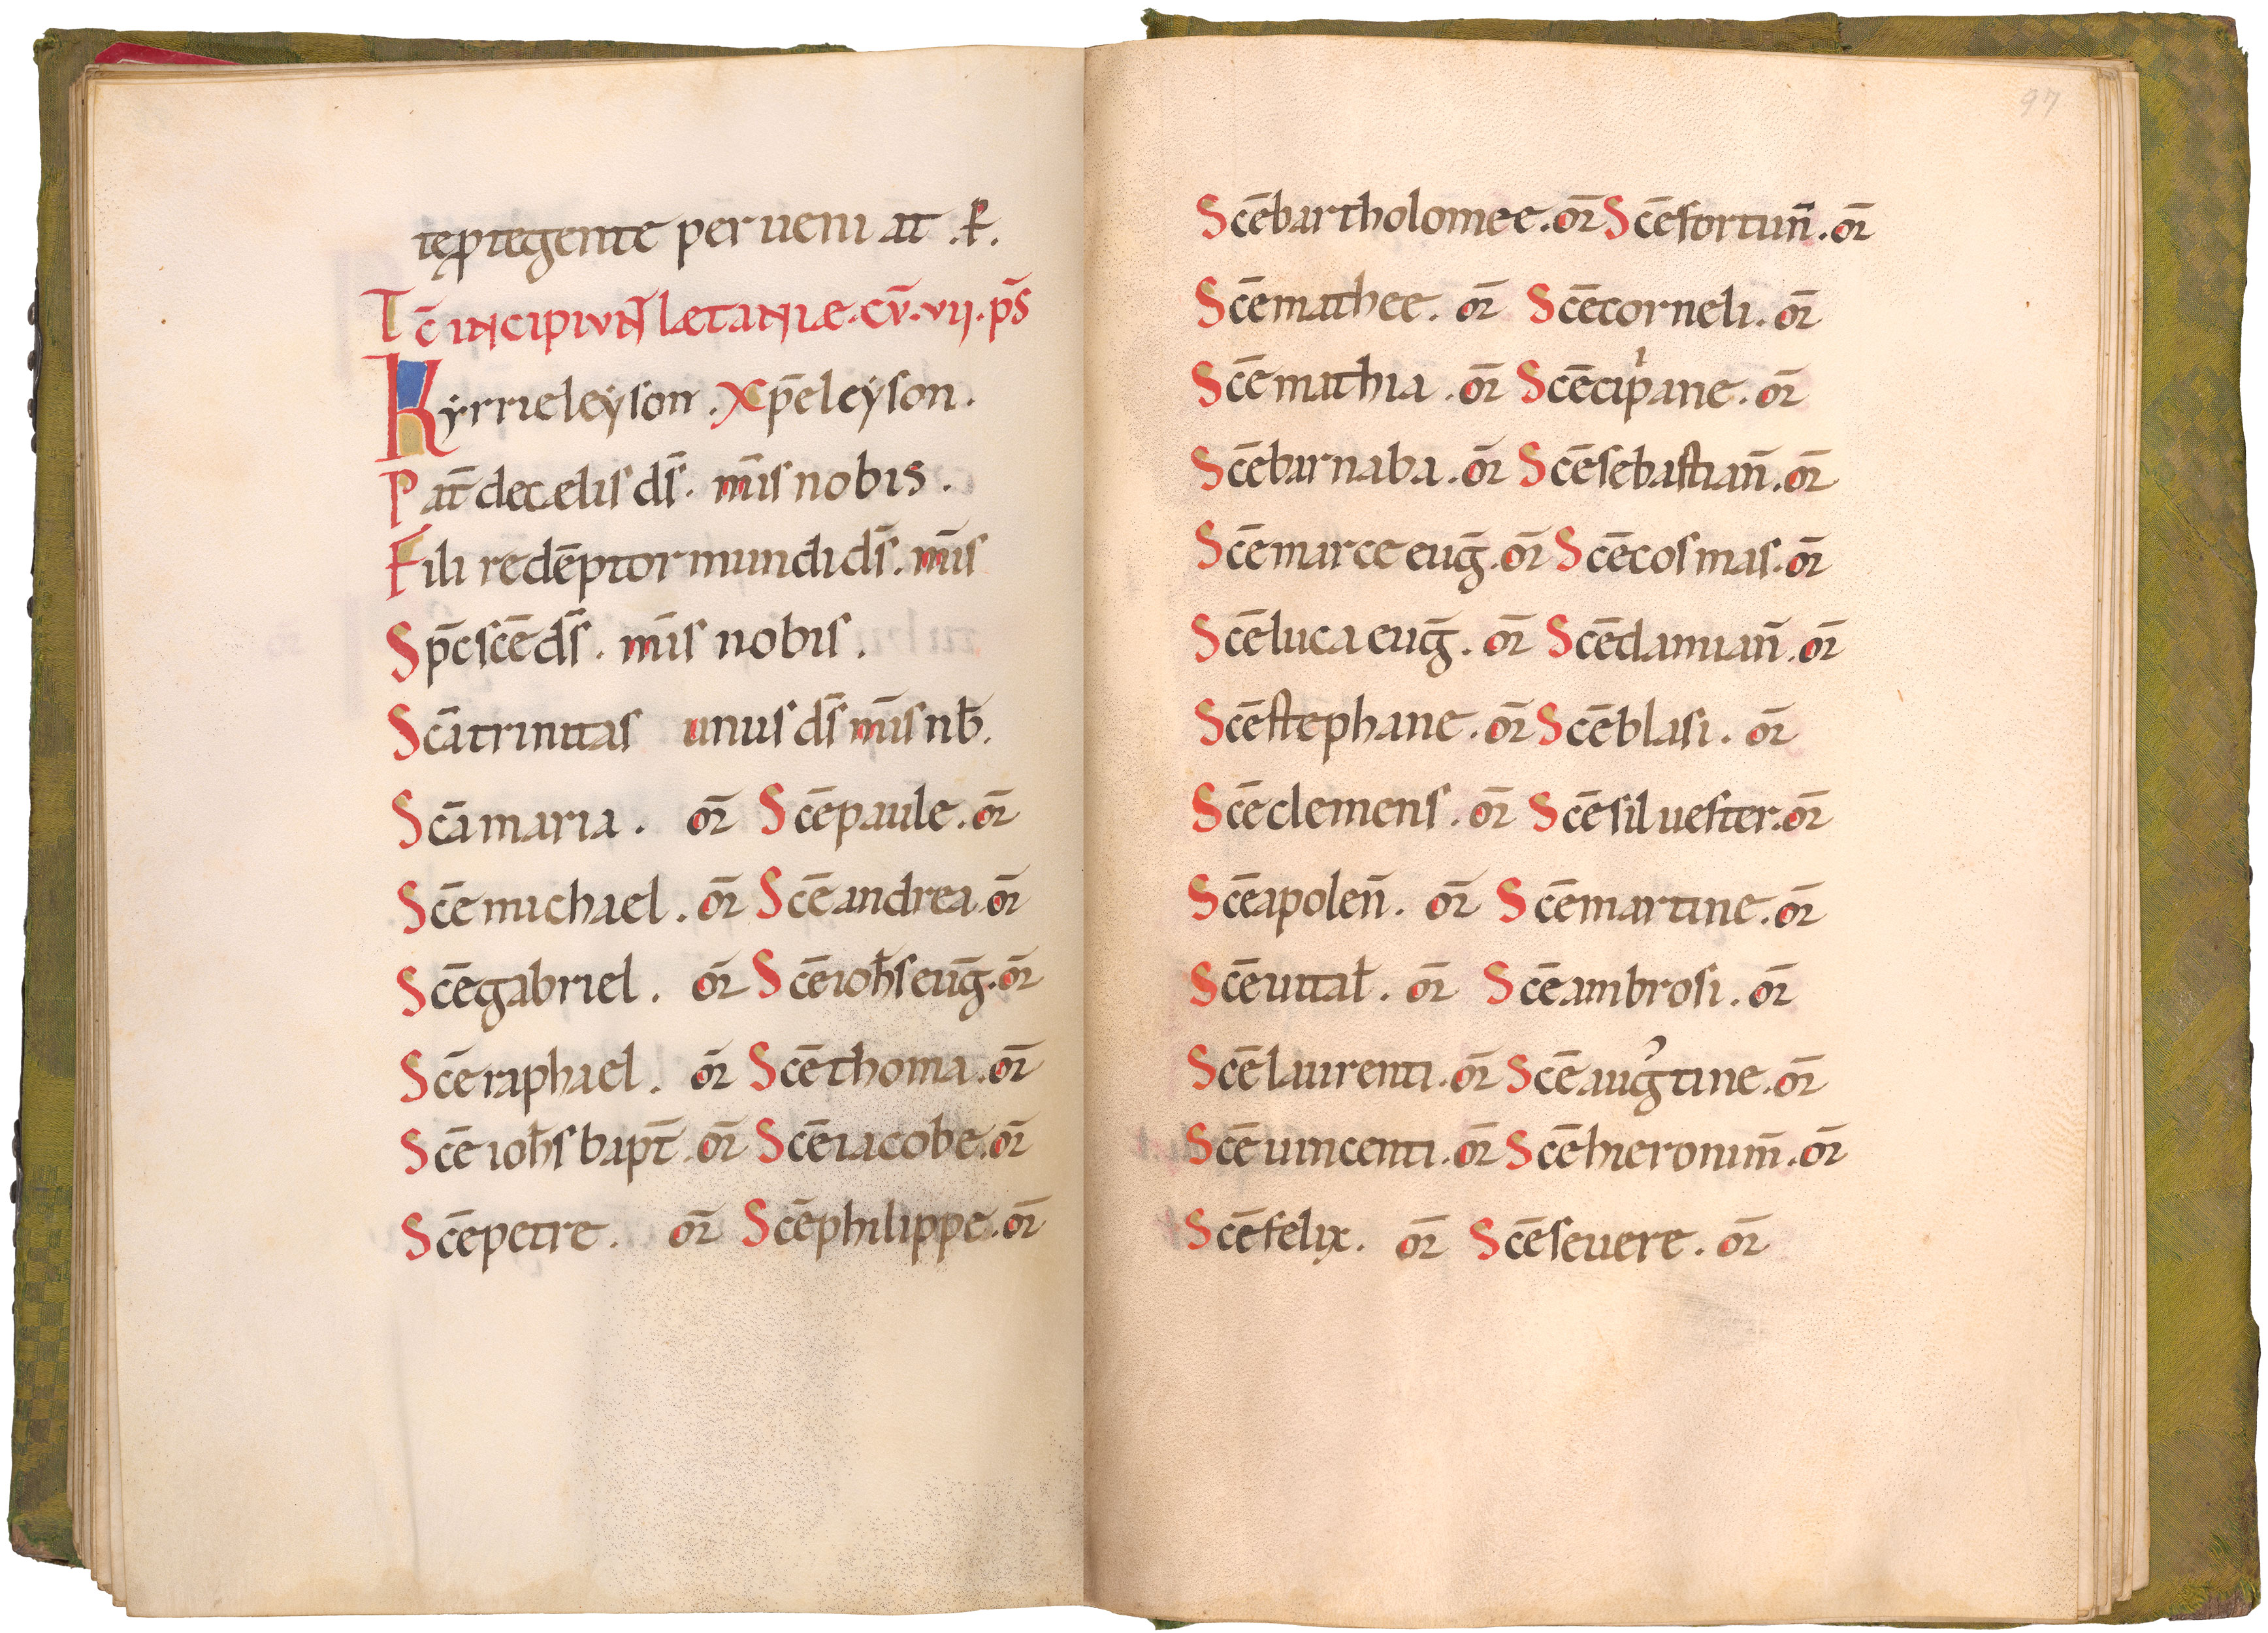 teꝓtegente perueniat .℟.
Tc̄ incipiun̄ lætaniæ. cv̄. vij. ps̄
Kyrrieleÿson. xp̄eleÿson.
Pat̄ decælis ds̄. mīs nobis.
Fili redēptor mundi ds̄. mīs
Sp̄c sc̄e ds̄. mīs nobis.
Sc̄a trinitas unus ds̄ mīs nb̄.
Sc̄a maria. or̄ Sc̄e paule. or̄
Sc̄e michael. or̄ Sc̄e andrea. or̄
Sc̄e gabriel. or̄ Sc̄e ioh̄s euḡ. or̄
Sc̄e raphael. or̄ Sc̄e thoma. or̄
Sc̄e ioh̄s bapt̄. or̄ Sc̄e iacobe. or̄
Sc̄e petre. or̄ Sc̄e philippe. or̄
97
Sc̄e bartholomee. or̄ Sc̄e fortun̄. or̄
Sc̄e mathee. or̄ Sc̄e corneli. or̄
Sc̄e mathia. or̄ Sc̄e cipͥane. or̄
Sc̄e barnaba. or̄ Sc̄e sebastian̄. or̄
Sc̄e marce euḡ. or̄ Sc̄e cosmas. or̄
Sc̄e luca euḡ. or̄ Sc̄e damian̄. or̄
Sc̄e stephane. or̄ Sc̄e blasi. or̄
Sc̄e clemens. or̄ Sc̄e siluester. or̄
Sc̄e apolen̄. or̄ Sc̄e martine. or̄
Sc̄e uital̄. or̄ Sc̄e ambrosi. or̄
Sc̄e laurenti. or̄ Sc̄e augꝰtine. or̄
Sc̄e uincenti. or̄ Sc̄e hieronim̄. or̄
Sc̄e felix. or̄ Sc̄e seuere. or̄